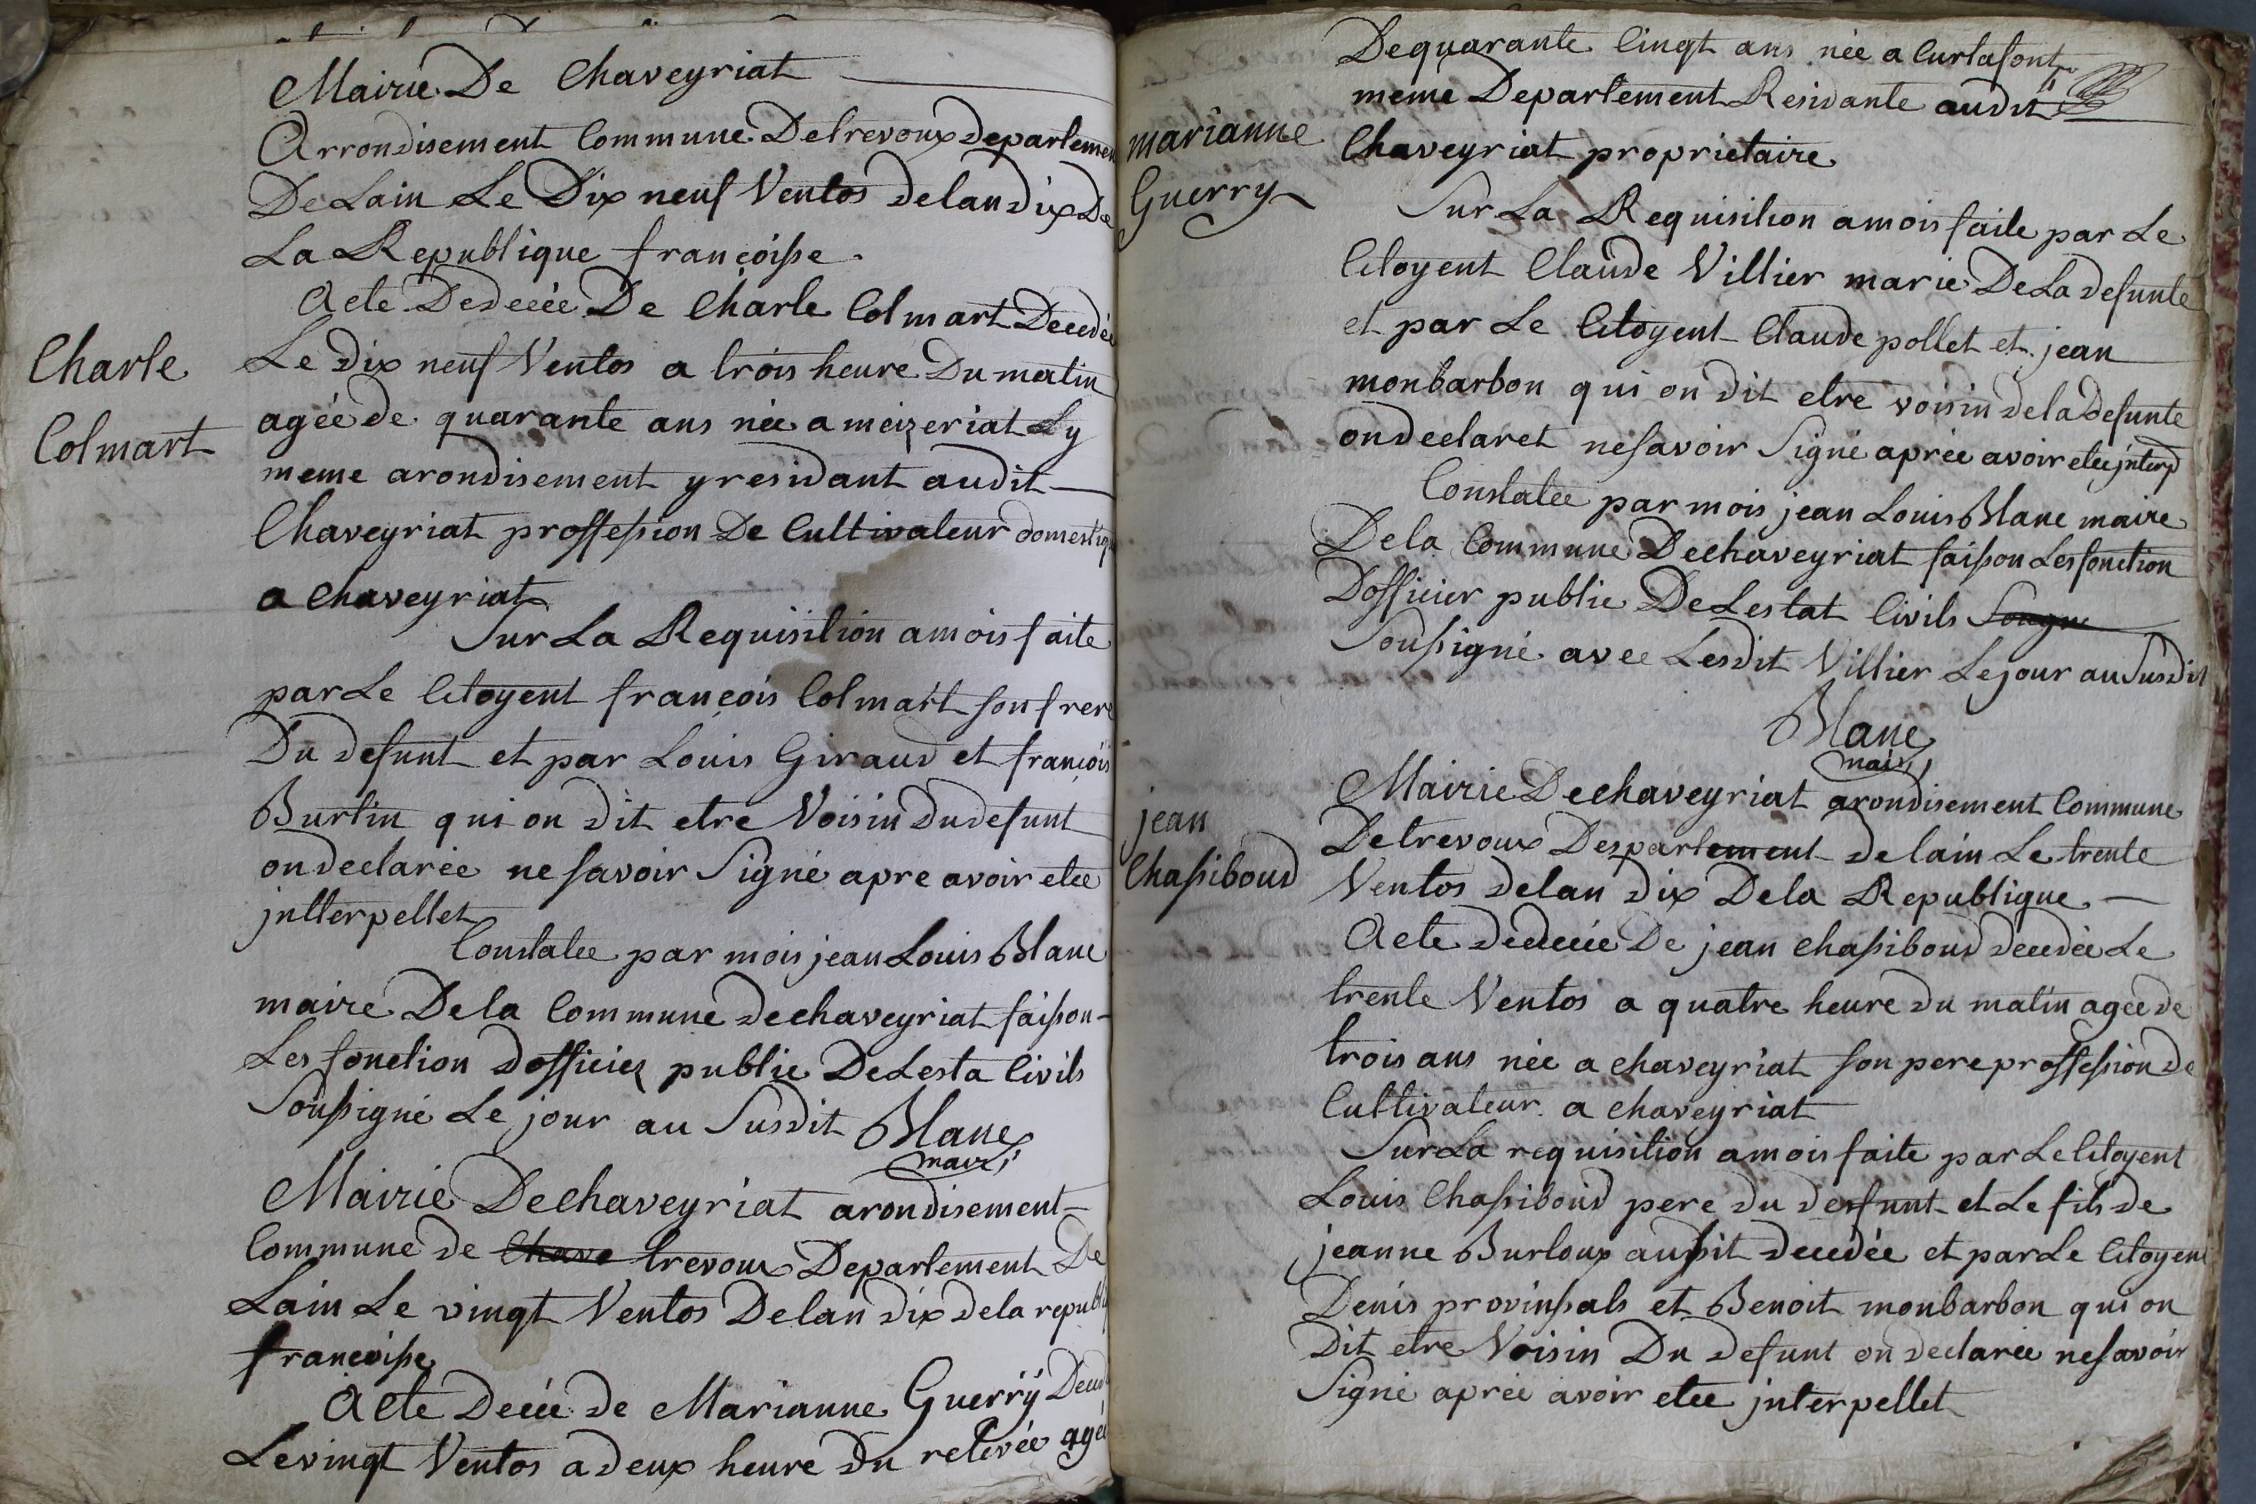 Mairie De Chaveyriat
Arrondisement Commune Detrevoux departemen
De Lain Le Dix neuf Ventos delan dix De
La Republique françoisse.
Acte Dedecée De Charle Colmart Decedée
Charle
Le dix neuf Ventos a trois heure Du matin
agée de quarante ans née a meizeriat Ly
Colmart
meme arondisement y residant audit
Chaveyriat proffession De Cultivateur domestiq
a Chaveyriat
Sur La Requisition a mois faite
par Le Citoyent françois Colmart son frere
Du defunt et par Louis Giraud et françois
Burtin qui on dit etre Voisin Du defunt
on declarée ne savoir Signé apre avoir etée
jntterpellet
Constatee par mois jean Louis Blanc
maire De la Commune de chaveyriat faisson
Les fonction dofficier public De Lesta Civils
Soussigné Le jour au Susdit Blanc
maire
Mairie De Chaveyriat arondisement
Commune de Chave trevoux Departement De
Lain Le vingt Ventos De lan dix de la republi
francoisse
Acte Decée de Marianne Guerrÿ Deced
Le vingt Ventos a deux heure Du relevée agée
De quarante Cingt ans née a Curtafont
meme Departement Residante audit
marianne
Chaveyriat proprietaire
Guerry
Sur La Requisition a mois faite par Le
Citoyent Claude Villier marie De La defunte
et par Le Citoyent Claude pollet et jean
monbarbon qui on dit etre voisin de la Defunte
on declaret ne savoir Signé aprée avoir etée jnterp
Constatee par mois jean Louis Blanc maire
De la Commune De chaveyriat faisson Les fonction
Dofficier public De Lestat Civils
Soussigné avec Lesdit Villier Le jour au Susdit
Blanc
maire
Mairie De chaveyriat arondisement Commune
jean
De trevoux Despartement de lain Le trente
Chassiboud
Ventos de lan dix De la Republique
Acte dedecée De jean chassiboud decedée Le
trente Ventos a quatre heure du matin agée de
trois ans née a chaveyriat son pere proffession de
Cultivateur a chaveyriat
Sur La requisition a mois faite par Le Citoyent
Louis Chassiboud pere du desfunt et Le fils de
jeanne Burtoux aussit decedée et par Le Citoyen
Denis provinssals et Benoit monbarbon qui on
Dit etre Voisin Du defunt on declarée ne savoir
Signé aprée avoir etée jnterpellet